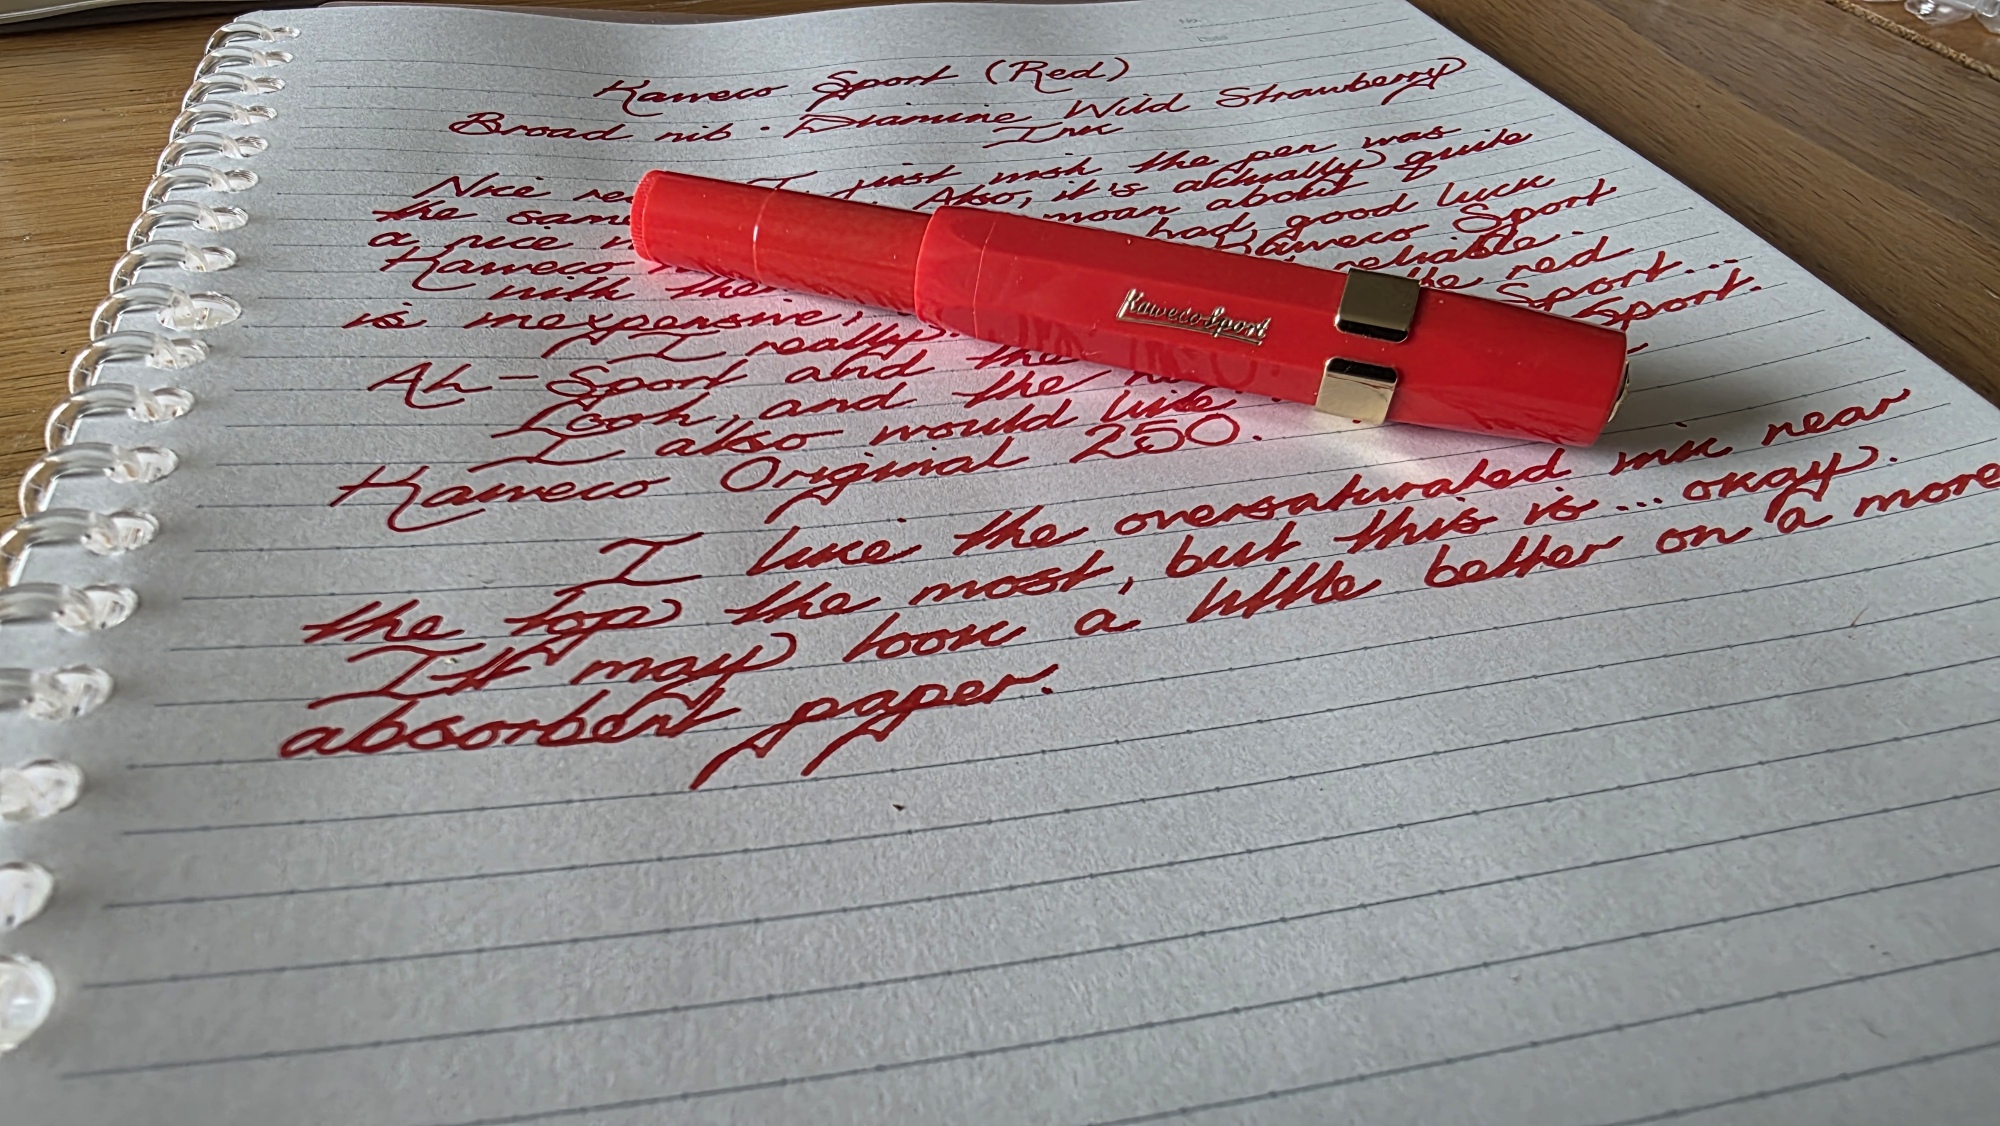 Kaweco Sport (Red)
Broad nib · Diamine Wild Strawberry
Ink
Nice I just wish the pen was
the same Also, it's actually quite
a nice moan about
Kaweco had good luck
with the Kaweco Sport
is inexpensive, reliable.
I really the red
AL-Sport and the Sport...
Look, and the Sport.
I also would like
Kaweco Original 250.
I like the oversaturated ink near
the top the most, but this is... okay.
It may look a little better on a more
absorbent paper.
Kaweco Sport